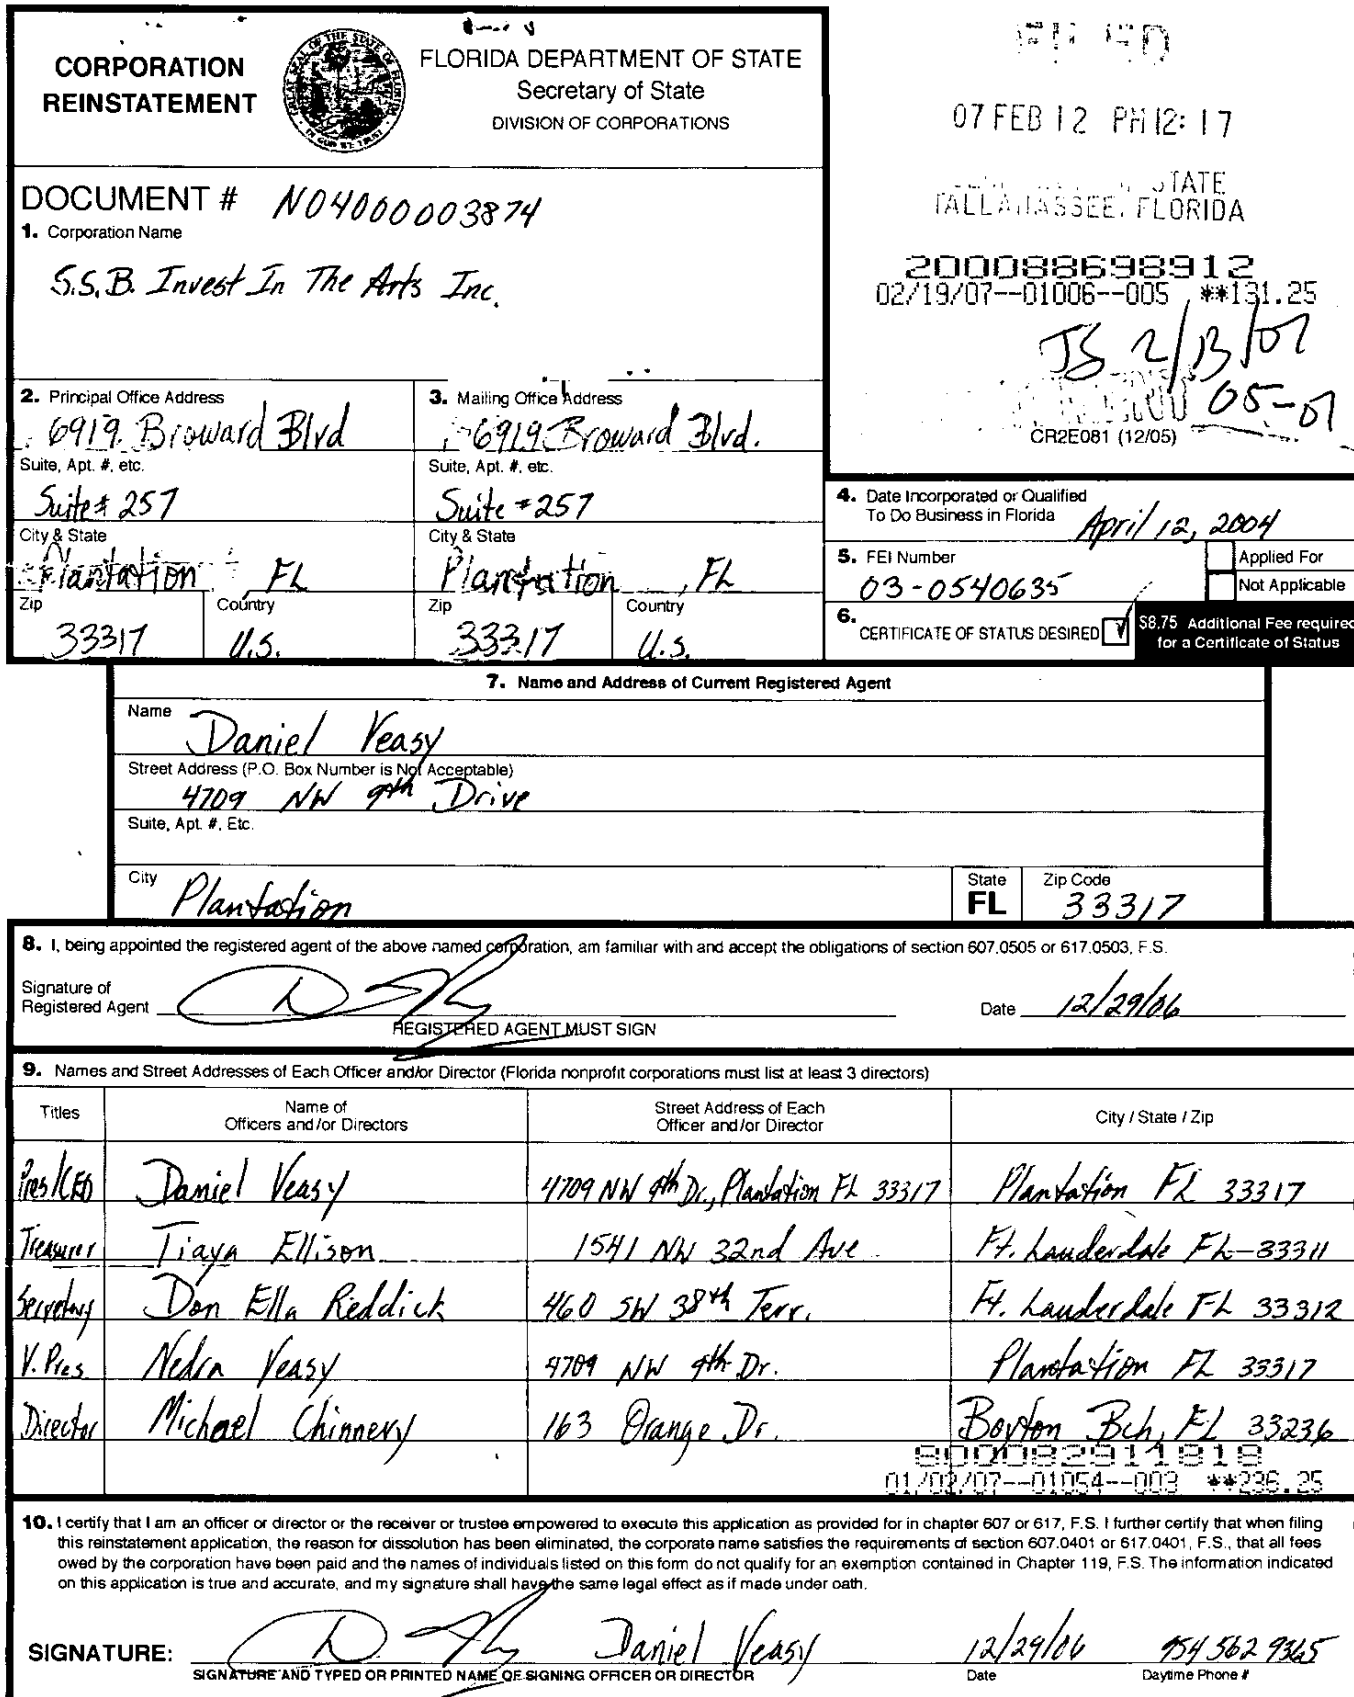 CORPORATION
REINSTATEMENT
FLORIDA DEPARTMENT OF STATE
Secretary of State
DIVISION OF CORPORATIONS
07 FEB 12 PM 12:17
STATE
TALLAHASSEE, FLORIDA
200088698912
02/19/07--01006--005 **131.25
JS 2/13/07
05-07
CR2E081 (12/05)
DOCUMENT # N04000003874
1. Corporation Name
S.S.B. Invest In The Arts Inc.
2. Principal Office Address
6919 Broward Blvd
Suite, Apt. #, etc.
Suite # 257
City & State
Plantation FL
Zip
33317
Country
U.S.
3. Mailing Office Address
6919 Broward Blvd.
Suite, Apt. #, etc.
Suite # 257
City & State
Plantation, FL
Zip
33317
Country
U.S.
4. Date Incorporated or Qualified
To Do Business in Florida
April 12, 2004
5. FEI Number
03-0540635
Applied For
Not Applicable
6. CERTIFICATE OF STATUS DESIRED
$8.75 Additional Fee required
for a Certificate of Status
7. Name and Address of Current Registered Agent
Name
Daniel Veasy
Street Address (P.O. Box Number is Not Acceptable)
4709 NW 9th Drive
Suite, Apt. #, Etc.
City
Plantation
State
FL
Zip Code
33317
8. I, being appointed the registered agent of the above named corporation, am familiar with and accept the obligations of section 607.0505 or 617.0503, F.S.
Signature of
Registered Agent
REGISTERED AGENT MUST SIGN
Date 12/29/06
9. Names and Street Addresses of Each Officer and/or Director (Florida nonprofit corporations must list at least 3 directors)
Titles
Name of
Officers and/or Directors
Street Address of Each
Officer and/or Director
City / State / Zip
Pres/CEO Daniel Veasy 4709 NW 9th Dr., Plantation FL 33317 Plantation FL 33317
Treasurer Tiaya Ellison 1541 NW 32nd Ave Ft. Lauderdale FL 33311
Secretary Don Ella Reddick 460 SW 38th Terr. Ft. Lauderdale FL 33312
V. Pres Nedra Veasy 4709 NW 9th Dr. Plantation FL 33317
Director Michael Chinnery 163 Orange Dr. Boyton Bch, FL 33236
800082911818
01/02/07--01054--003 **236.25
10. I certify that I am an officer or director or the receiver or trustee empowered to execute this application as provided for in chapter 607 or 617, F.S. I further certify that when filing
this reinstatement application, the reason for dissolution has been eliminated, the corporate name satisfies the requirements of section 607.0401 or 617.0401, F.S., that all fees
owed by the corporation have been paid and the names of individuals listed on this form do not qualify for an exemption contained in Chapter 119, F.S. The information indicated
on this application is true and accurate, and my signature shall have the same legal effect as if made under oath.
SIGNATURE: Daniel Veasy 12/29/06 954 562 9365
SIGNATURE AND TYPED OR PRINTED NAME OF SIGNING OFFICER OR DIRECTOR
Date
Daytime Phone #